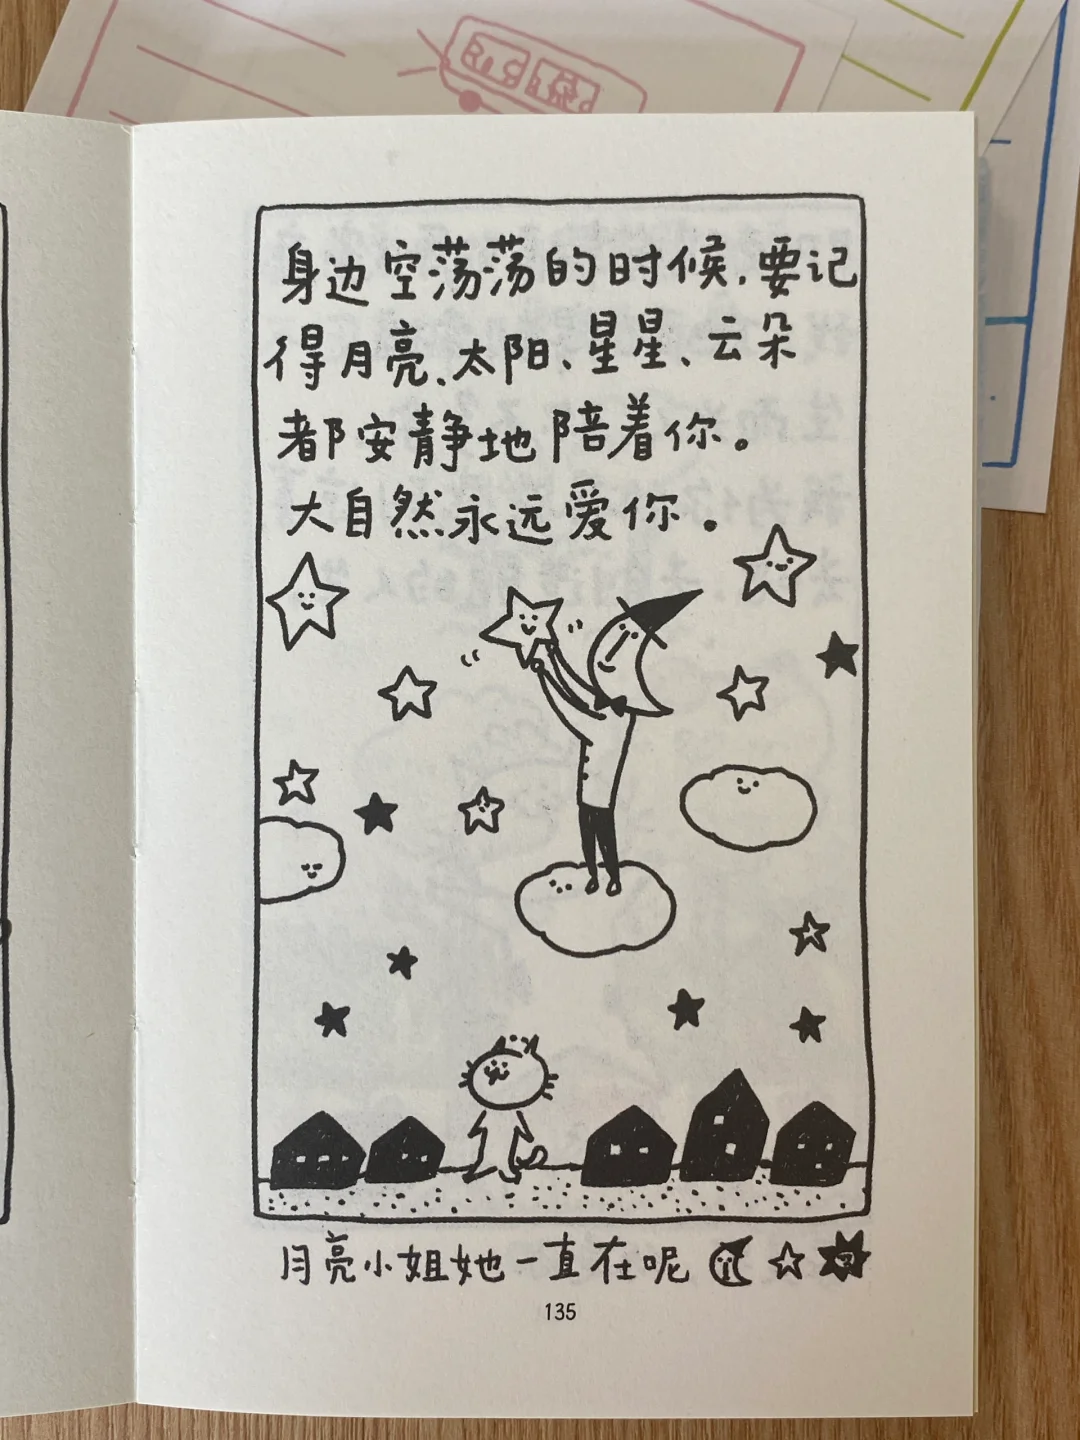 身边空荡荡的时候，要记
得月亮、太阳、星星、云朵
都安静地陪着你。
大自然永远爱你。
月亮小姐她一直在呢
135